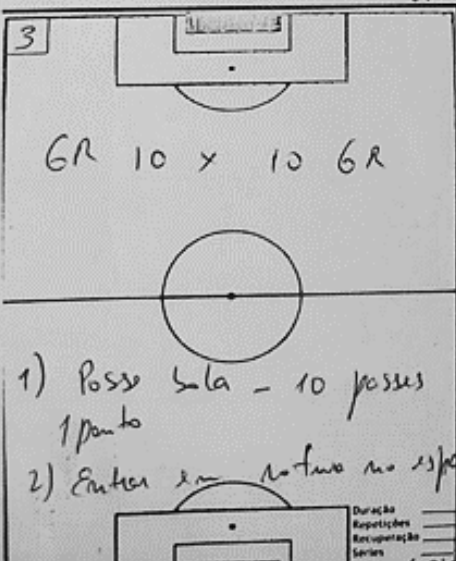 3
GR 10 x 10 GR
1) Posse bola - 10 passes
1 ponto
2) Entrar em no
Duração
Repetições
Recuperação
Séries